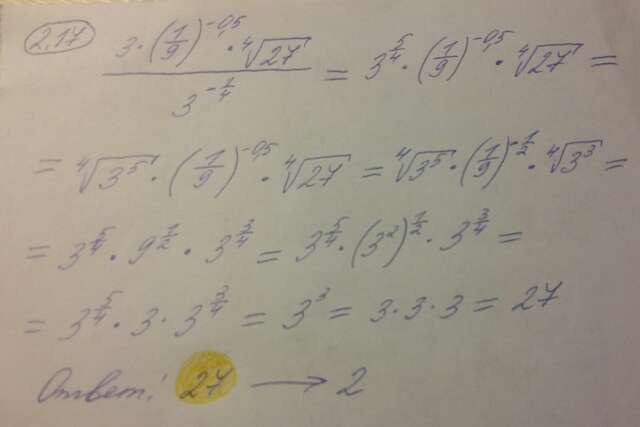 2.17 (3 · (1/9)^(-0,5) · ⁴√27) / 3^(-1/4) = 3^(5/4) · (1/9)^(-0,5) · ⁴√27 =
= ⁴√3⁵ · (1/9)^(-0,5) · ⁴√27 = ⁴√3⁵ · (1/9)^(-1/2) · ⁴√3³ =
= 3^(5/4) · 9^(1/2) · 3^(3/4) = 3^(5/4) · (3²)^(1/2) · 3^(3/4) =
= 3^(5/4) · 3 · 3^(3/4) = 3³ = 3 · 3 · 3 = 27
Ответ: 27 → 2